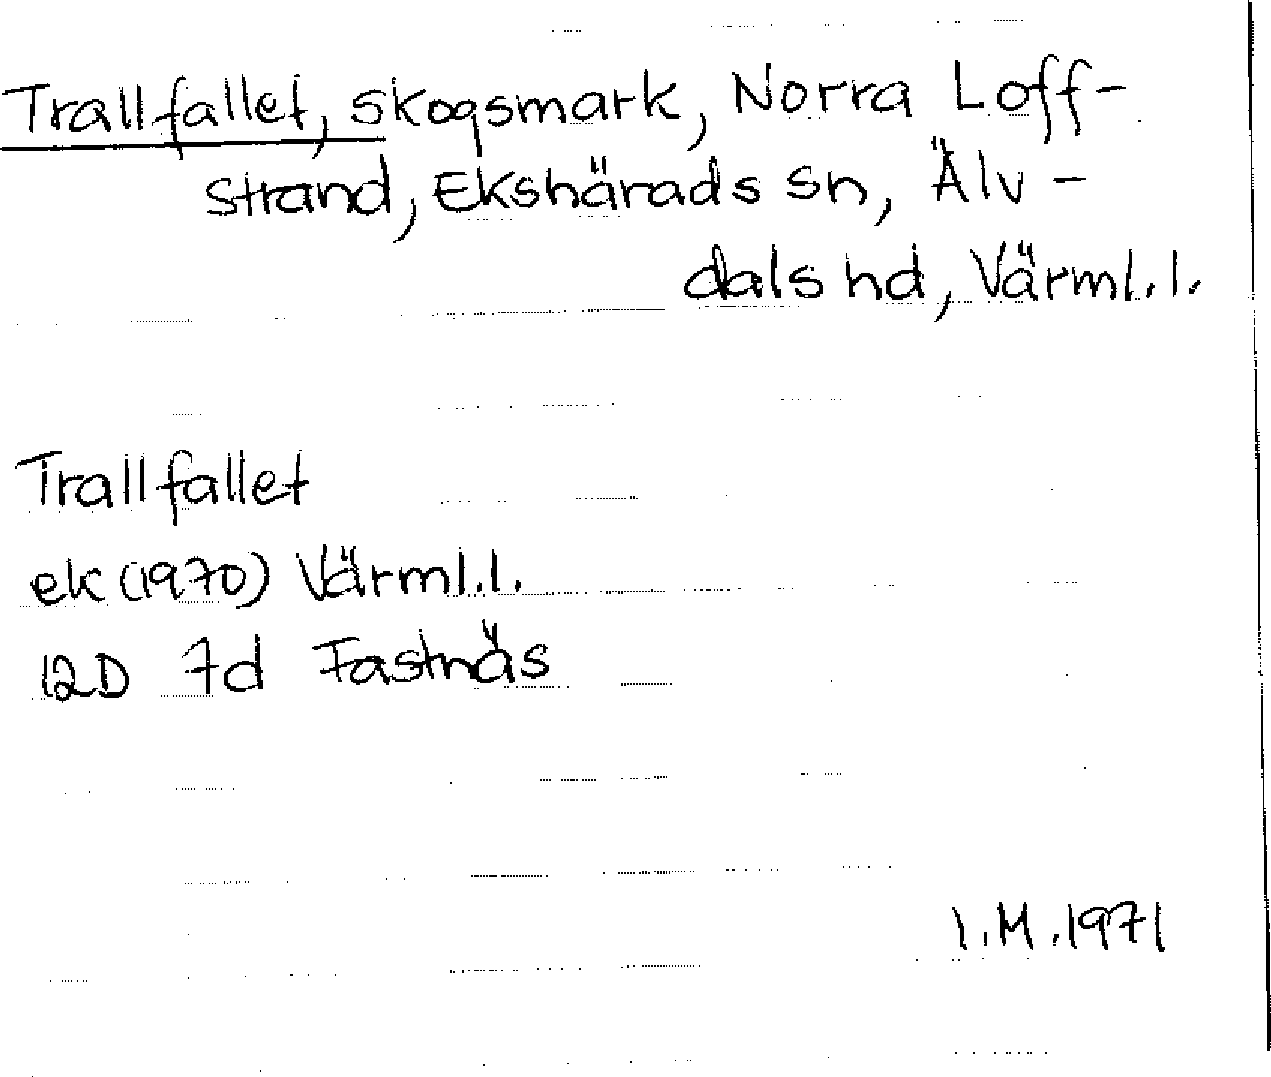 Trallfallet, skogsmark, Norra Loff-
strand, Ekshärads sn, Älv-
dals hd, Värml.l.
Trallfallet
ek (1970) Värml.l.
12D 7d Fastnäs
I.M.1971